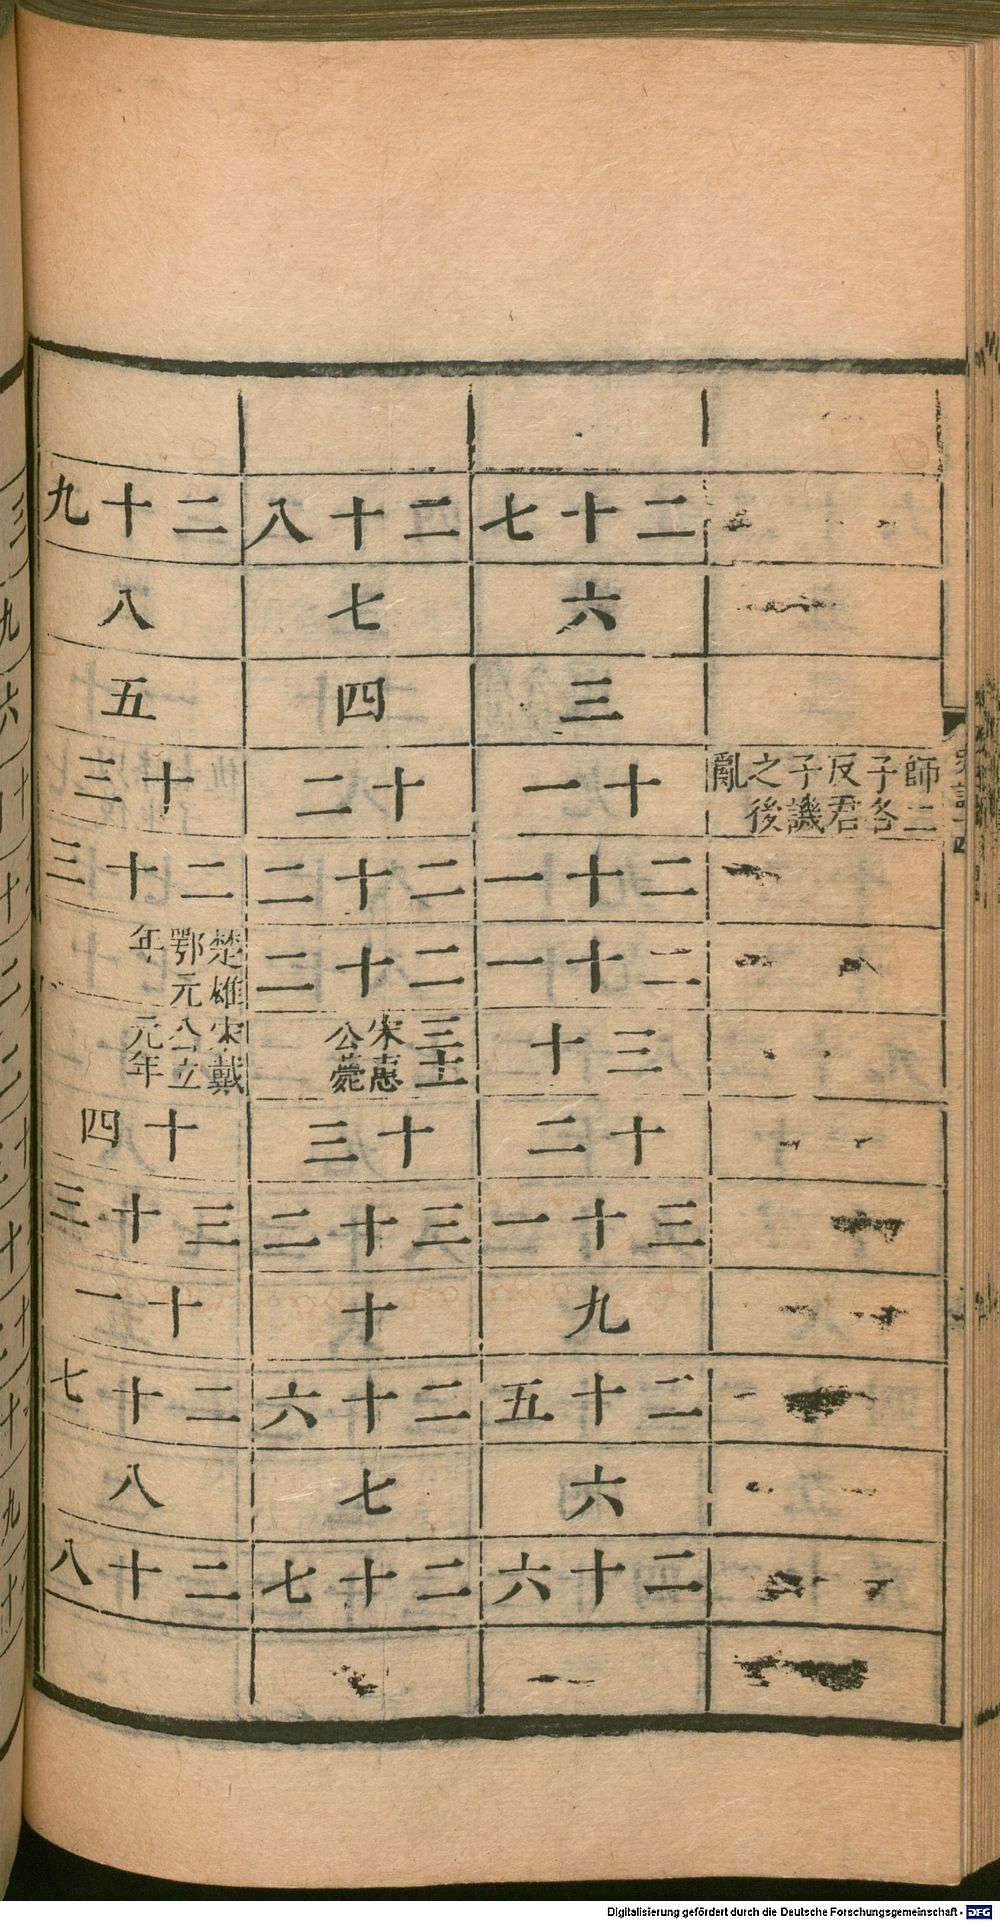 師二子名反君子譏之後亂
二十七
六
三
十一
二十一
二十一
三十
十二
三十一
九
二十五
六
二十六
二十八
七
四
十二
二十二
二十二
三十一宋惠公薨
十三
三十二
十
二十六
七
二十七
二十九
八
五
十三
二十三
楚雄鄂元年
宋戴公立元年
十四
三十三
十一
二十七
八
二十八
Digitalisierung gefördert durch die Deutsche Forschungsgemeinschaft - DFG